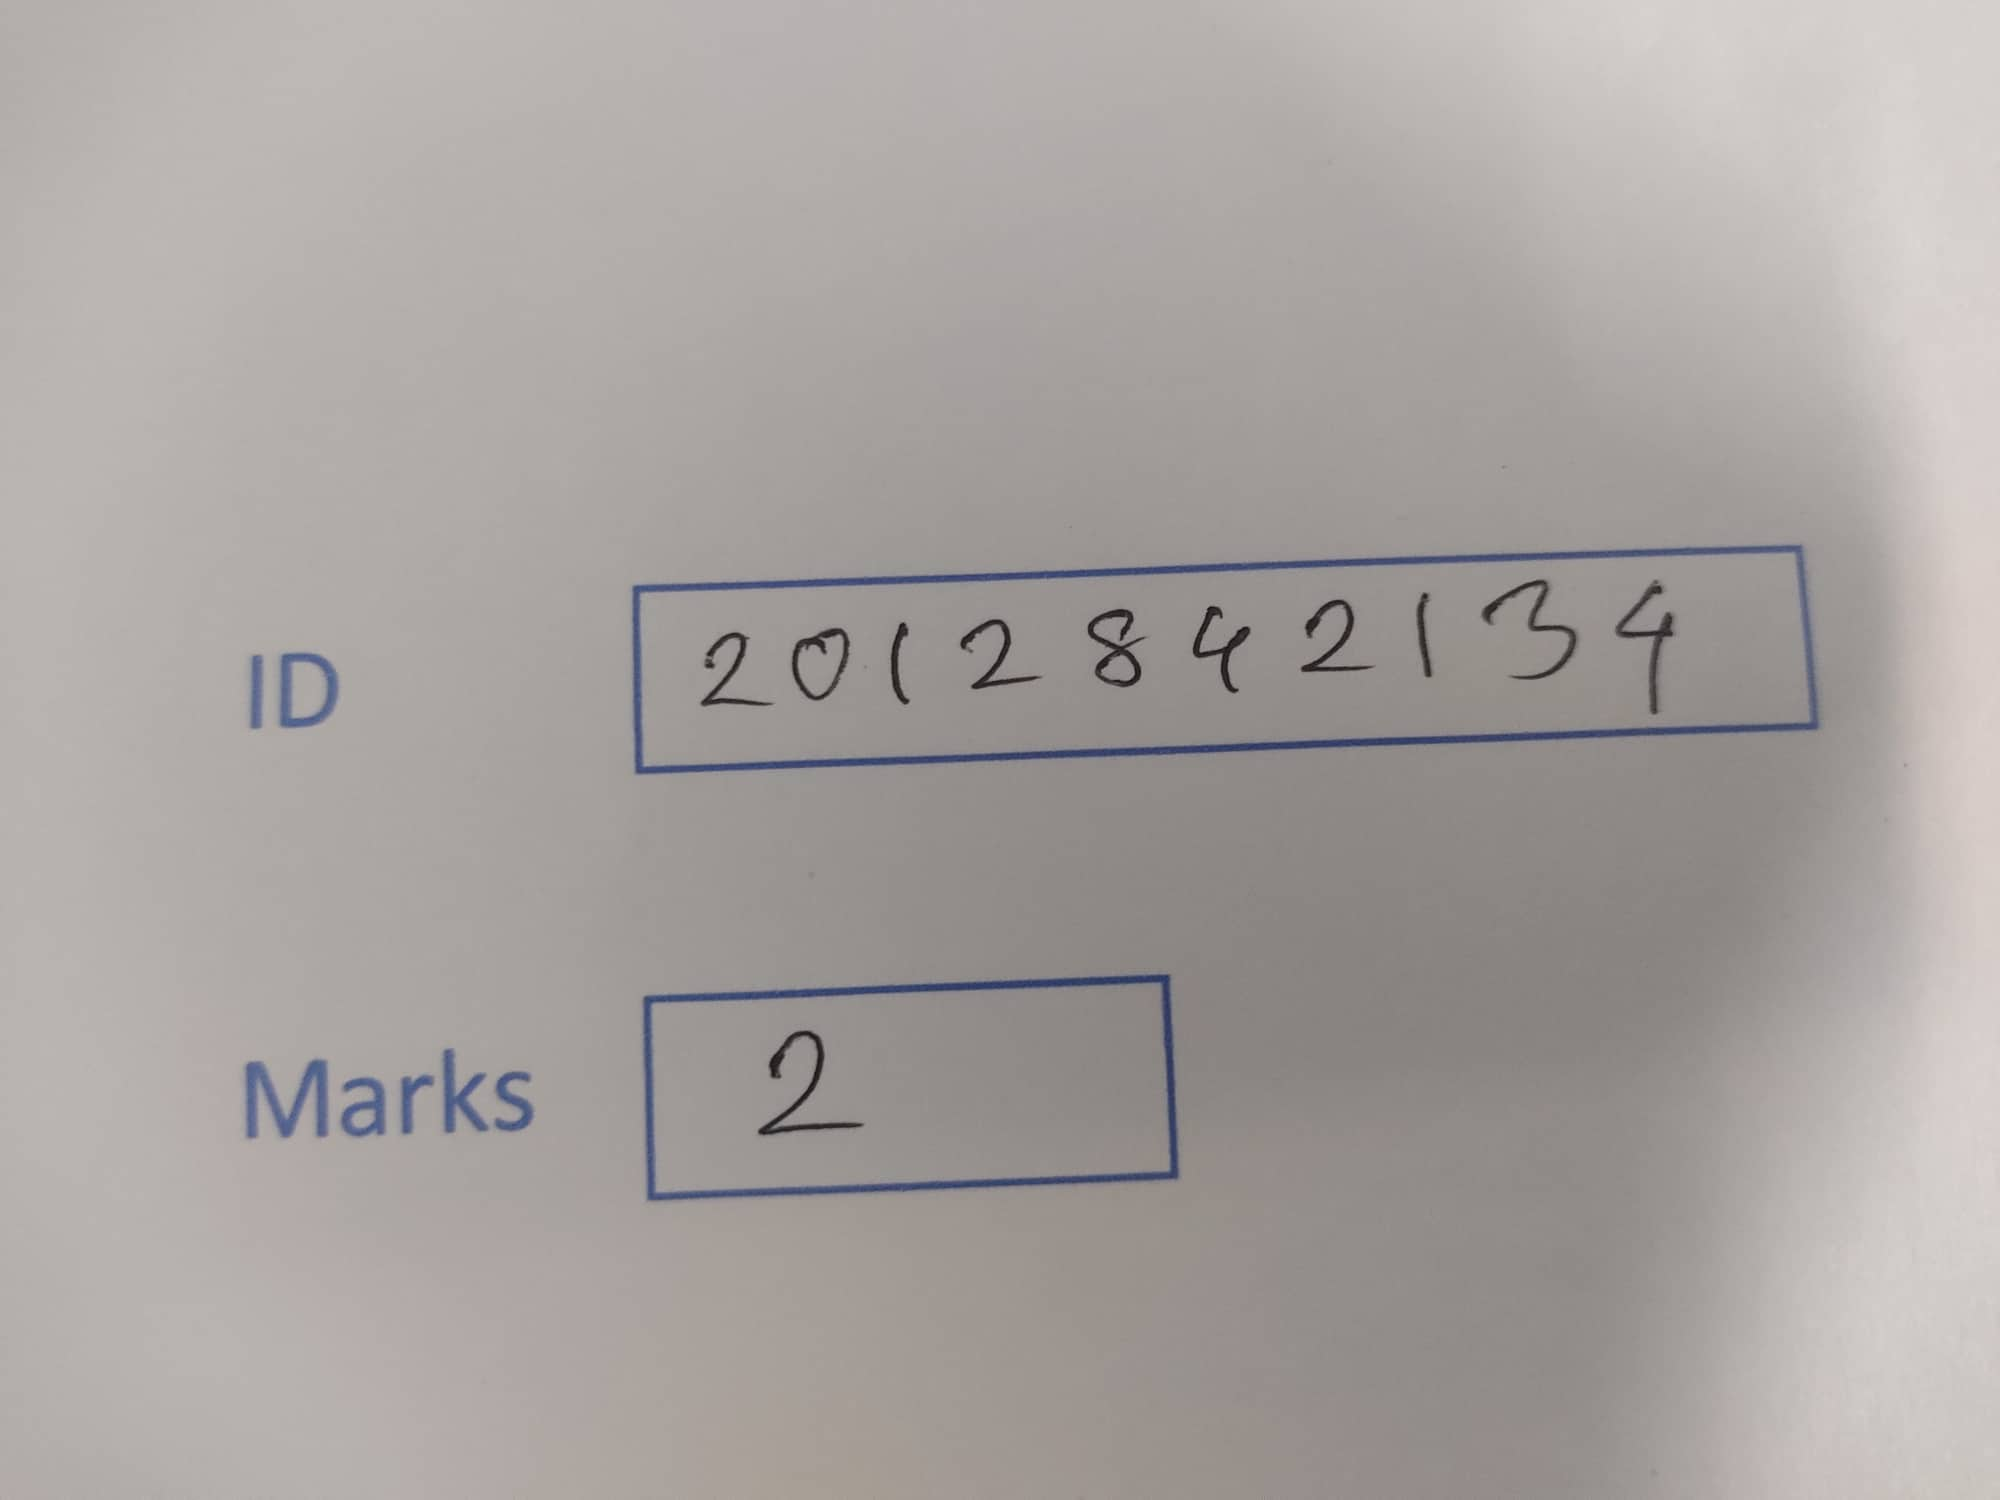 ID 2012842134
Marks 2